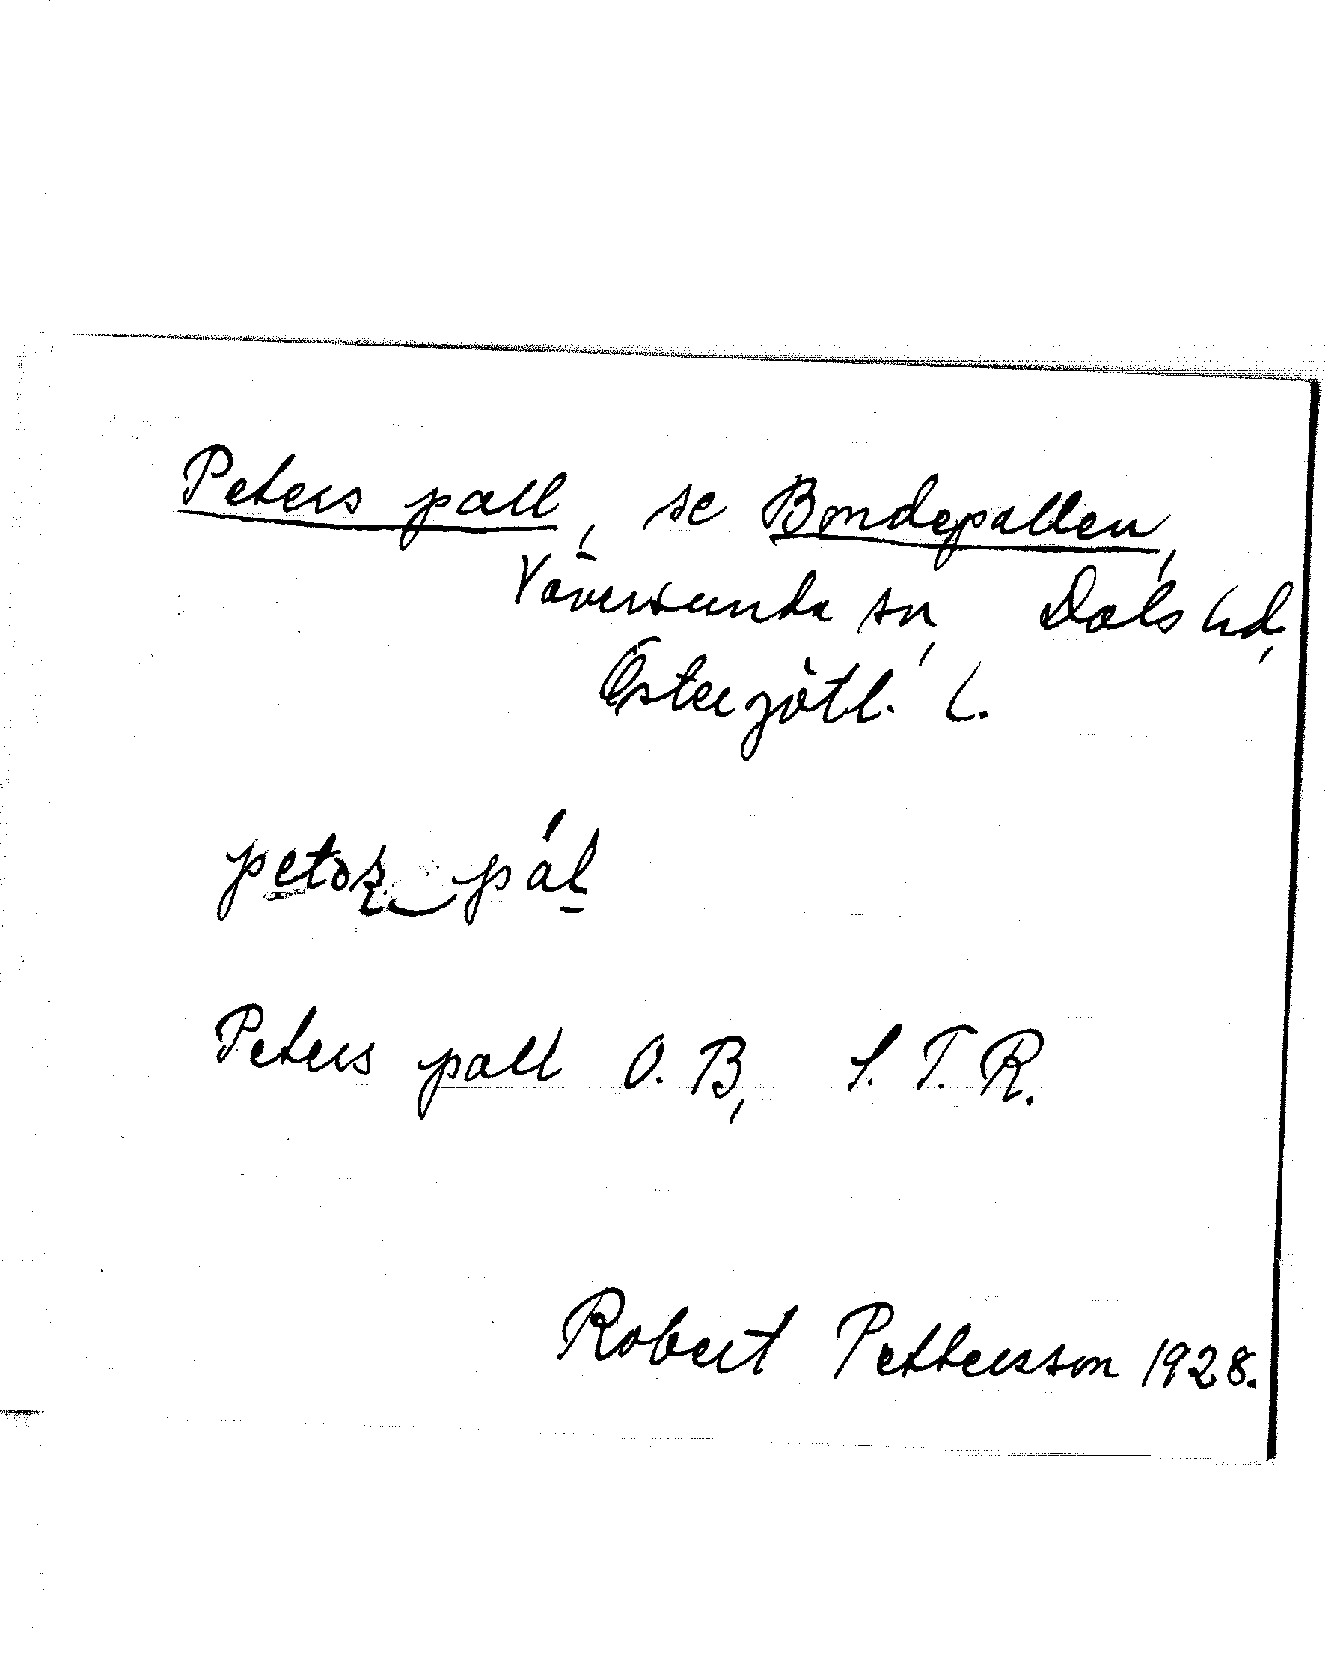 Peters pall, se Bondepallen,
Väversunda sn, Dals hd,
Östergötl. l.
Peters pall O. B, S. T. R.
Robert Petterson 1928.